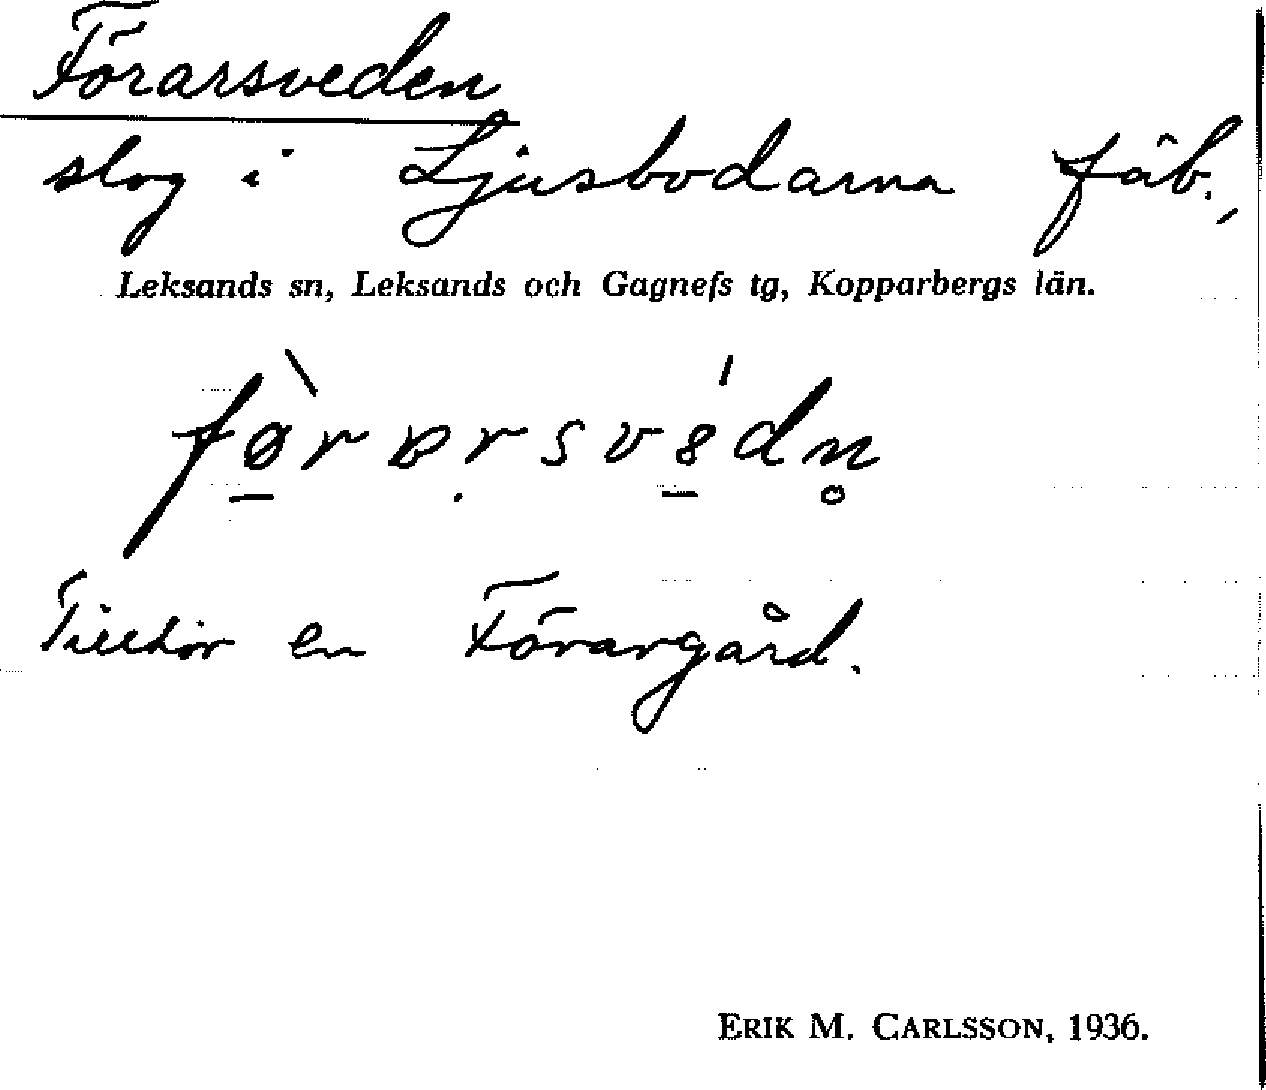 Förarsveden
slog i Ljusbodarna fäb.,
Leksands sn, Leksands och Gagnefs tg, Kopparbergs län.
Tillhör en Förargård.
ERIK M. CARLSSON, 1936.